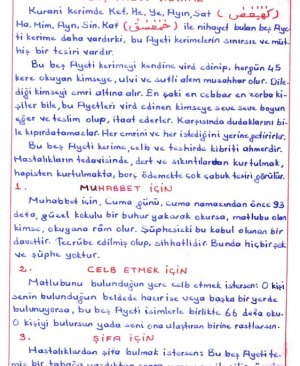 Kurani kerimde Kef, He, Ye, Ayın, Sat ( كهيعص )
Ha, Mim, Ayn, Sin, Kaf ( حمعسق ) ile nihayet bulan beş Aye-
ti kerime daha vardırki, bu Ayeti kerimelerin sınırsız ve müt-
hiş bir tesiri vardır.
Bu beş Ayeti kerimeyi kendine vird edinip, hergün 45
kere okuyan kimseye, ulvi ve sufli alem musahhar olur. Dile-
diği kimseyi emri altına alır. En şaki en cebbar en zorba ki-
şiler bile, bu Ayetleri vird edinen kimseye seve seve boyun
eğer ve teslim olup, itaat ederler. Karşısında dudaklarını bi-
le kıpırdatamazlar. Her emrini ve her istediğini yerine getirirler.
Bu beş Ayeti kerime, celb ve teshirde kibriti ahmerdir.
Hastalıkların tedavisinde, dert ve sıkıntılardan kurtulmak,
hapisten kurtulmakta, borç ödemekte çok çabuk tesiri görülür.
1. MUHABBET İÇİN
Muhabbet için, Cuma günü, cuma namazından önce 93
defa, güzel kokulu bir buhur yakarak okursa, matlubu olan
kimse, okuyana râm olur. Şüphesizki bu kabul olunan bir
davettir. Tecrübe edilmiş olup, sıhhatlidir. Bunda hiçbir şek
ve şüphe yoktur.
2. CELB ETMEK İÇİN
Matlubunu bulunduğun yere celb etmek istersen: O kişi
senin bulunduğun beldede hazır ise veya başka bir yerde
bulunuyorsa, bu beş Ayeti isimlerle birlikte 66 defa oku.
O kişiyi bulursun yada seni ona ulaştıran birine rastlarsın.
3. ŞİFA İÇİN
Hastalıklardan şifa bulmak istersen: Bu beş Ayeti te-
miz bir tabağa yazdıktan sonra